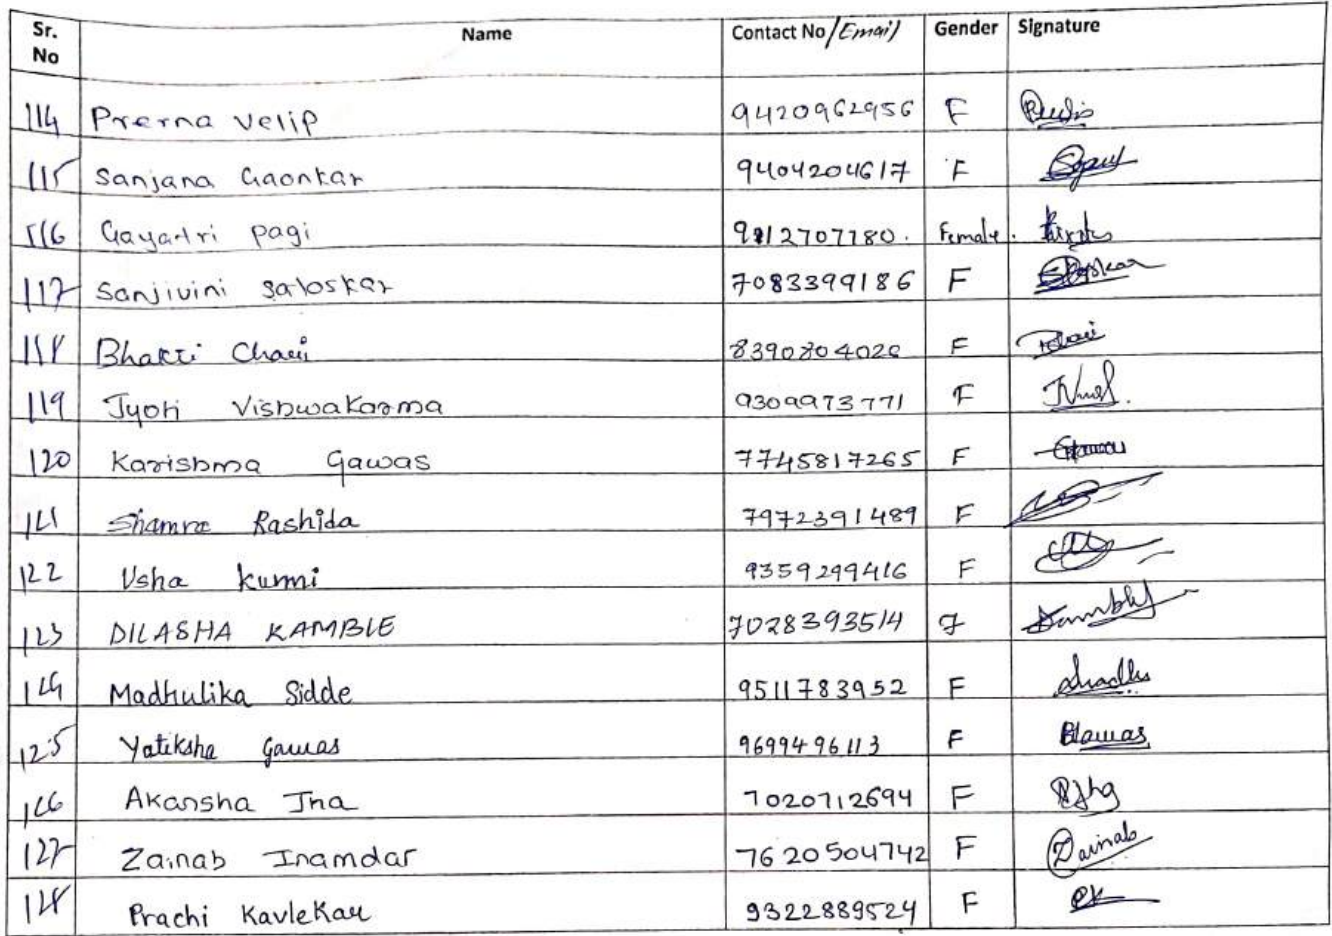 Sr. No Name Contact No/Email Gender Signature
114 Prerna Velip 9420962956 F
115 Sanjana Gaonkar 9404204617 F
116 Gayatri Pagi 9112707780. Female.
117 Sanjivini Saloskar 7083399186 F
118 Bhakti Chari 8390804026 F
119 Jyoti Vishwakarma 9309973771 F
120 Karishma Gawas 7745817265 F
121 Rashida 7972391489 F
122 Usha Kurmi 9359299416 F
123 DILASHA KAMBLE 7028393514 F
124 Madhulika Sidde 9511783952 F
125 Yatiksha Gawas 9699496113 F Gawas
126 Akansha Jha 7020712694 F
127 Zainab Inamdar 7620504742 F Zainab
128 Prachi Kavlekar 9322889524 F PK